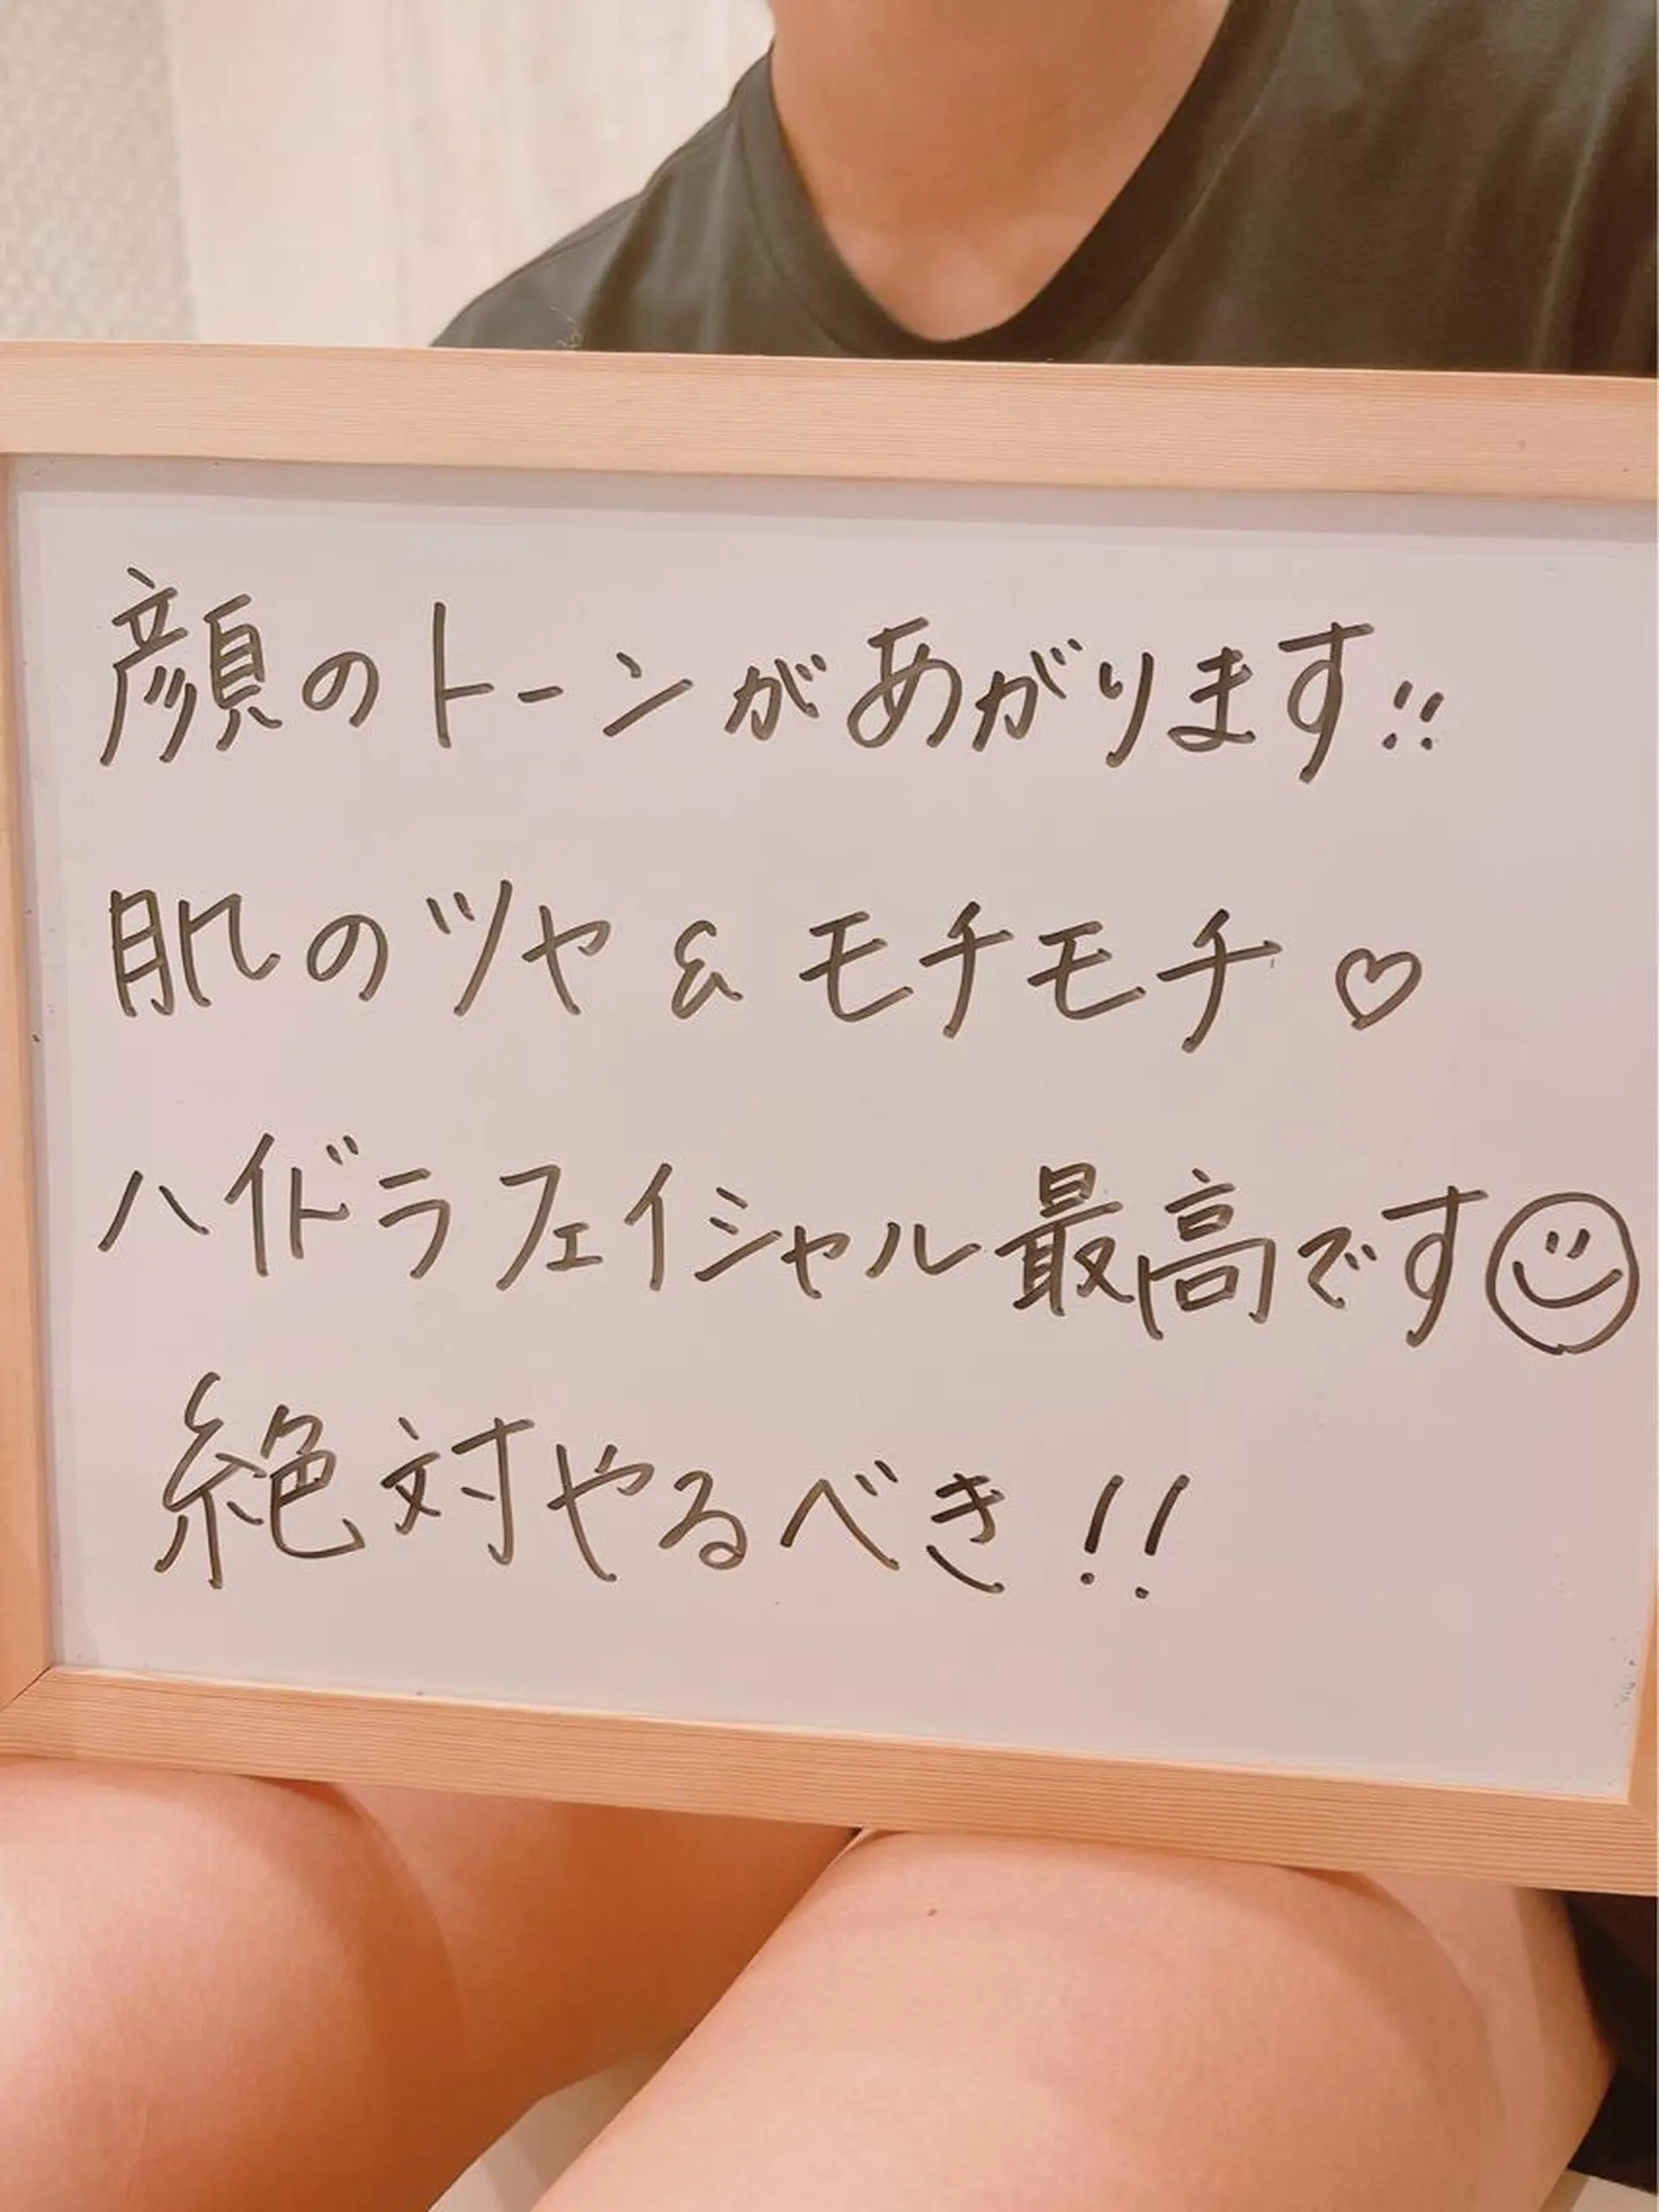 顔のトーンがあがります!!
肌のツヤ&モチモチ♡
ハイドラフェイシャル最高です☺
絶対やるべき!!